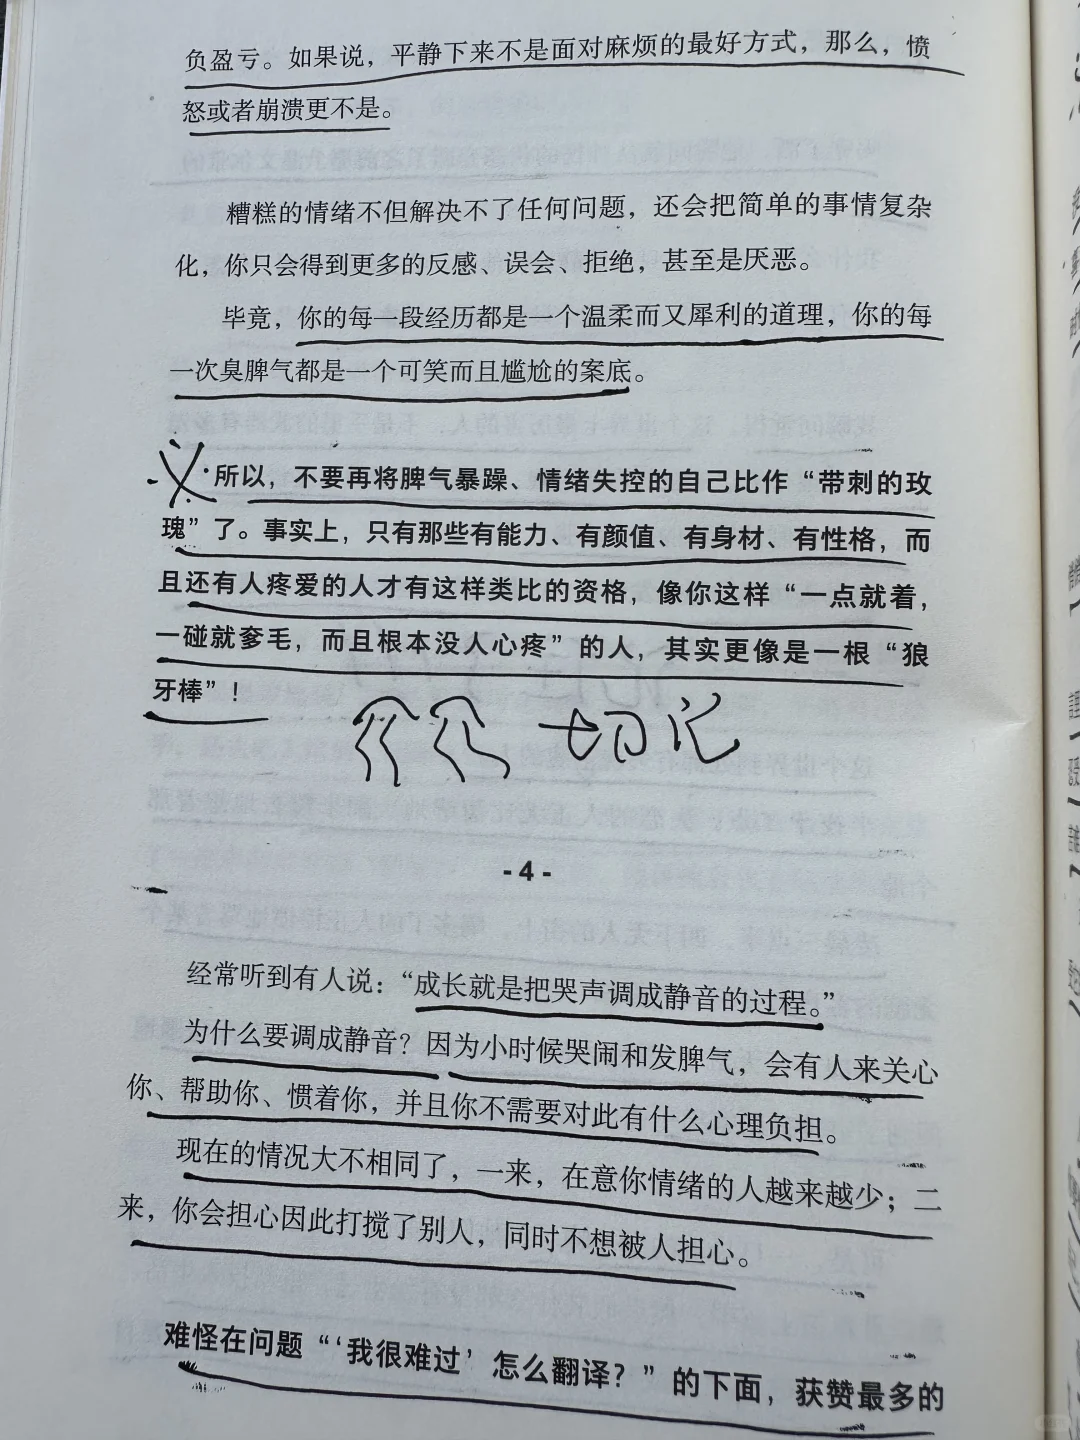 负盈亏。如果说，平静下来不是面对麻烦的最好方式，那么，愤
怒或者崩溃更不是。
糟糕的情绪不但解决不了任何问题，还会把简单的事情复杂
化，你只会得到更多的反感、误会、拒绝，甚至是厌恶。
毕竟，你的每一段经历都是一个温柔而又犀利的道理，你的每
一次臭脾气都是一个可笑而且尴尬的案底。
所以，不要再将脾气暴躁、情绪失控的自己比作“带刺的玫
瑰”了。事实上，只有那些有能力、有颜值、有身材、有性格，而
且还有人疼爱的人才有这样类比的资格，像你这样“一点就着，
一碰就奓毛，而且根本没人心疼”的人，其实更像是一根“狼
牙棒”！
切记
-4-
经常听到有人说：“成长就是把哭声调成静音的过程。”
为什么要调成静音？因为小时候哭闹和发脾气，会有人来关心
你、帮助你、惯着你，并且你不需要对此有什么心理负担。
现在的情况大不相同了，一来，在意你情绪的人越来越少；二
来，你会担心因此打搅了别人，同时不想被人担心。
难怪在问题“‘我很难过’怎么翻译？”的下面，获赞最多的